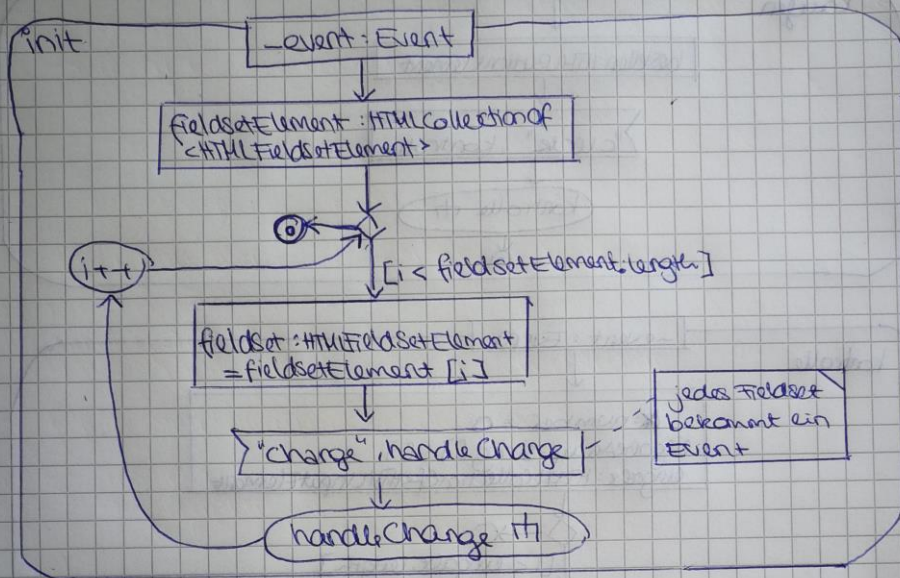 init
_event : Event
fieldsetElement : HTMLCollectionOf
<HTMLFieldsetElement>
i++
[i < fieldsetElement.length]
fieldset : HTMLFieldSetElement
= fieldsetElement [i]
"change", handleChange
jedes Fieldset
bekommt ein
Event
handleChange